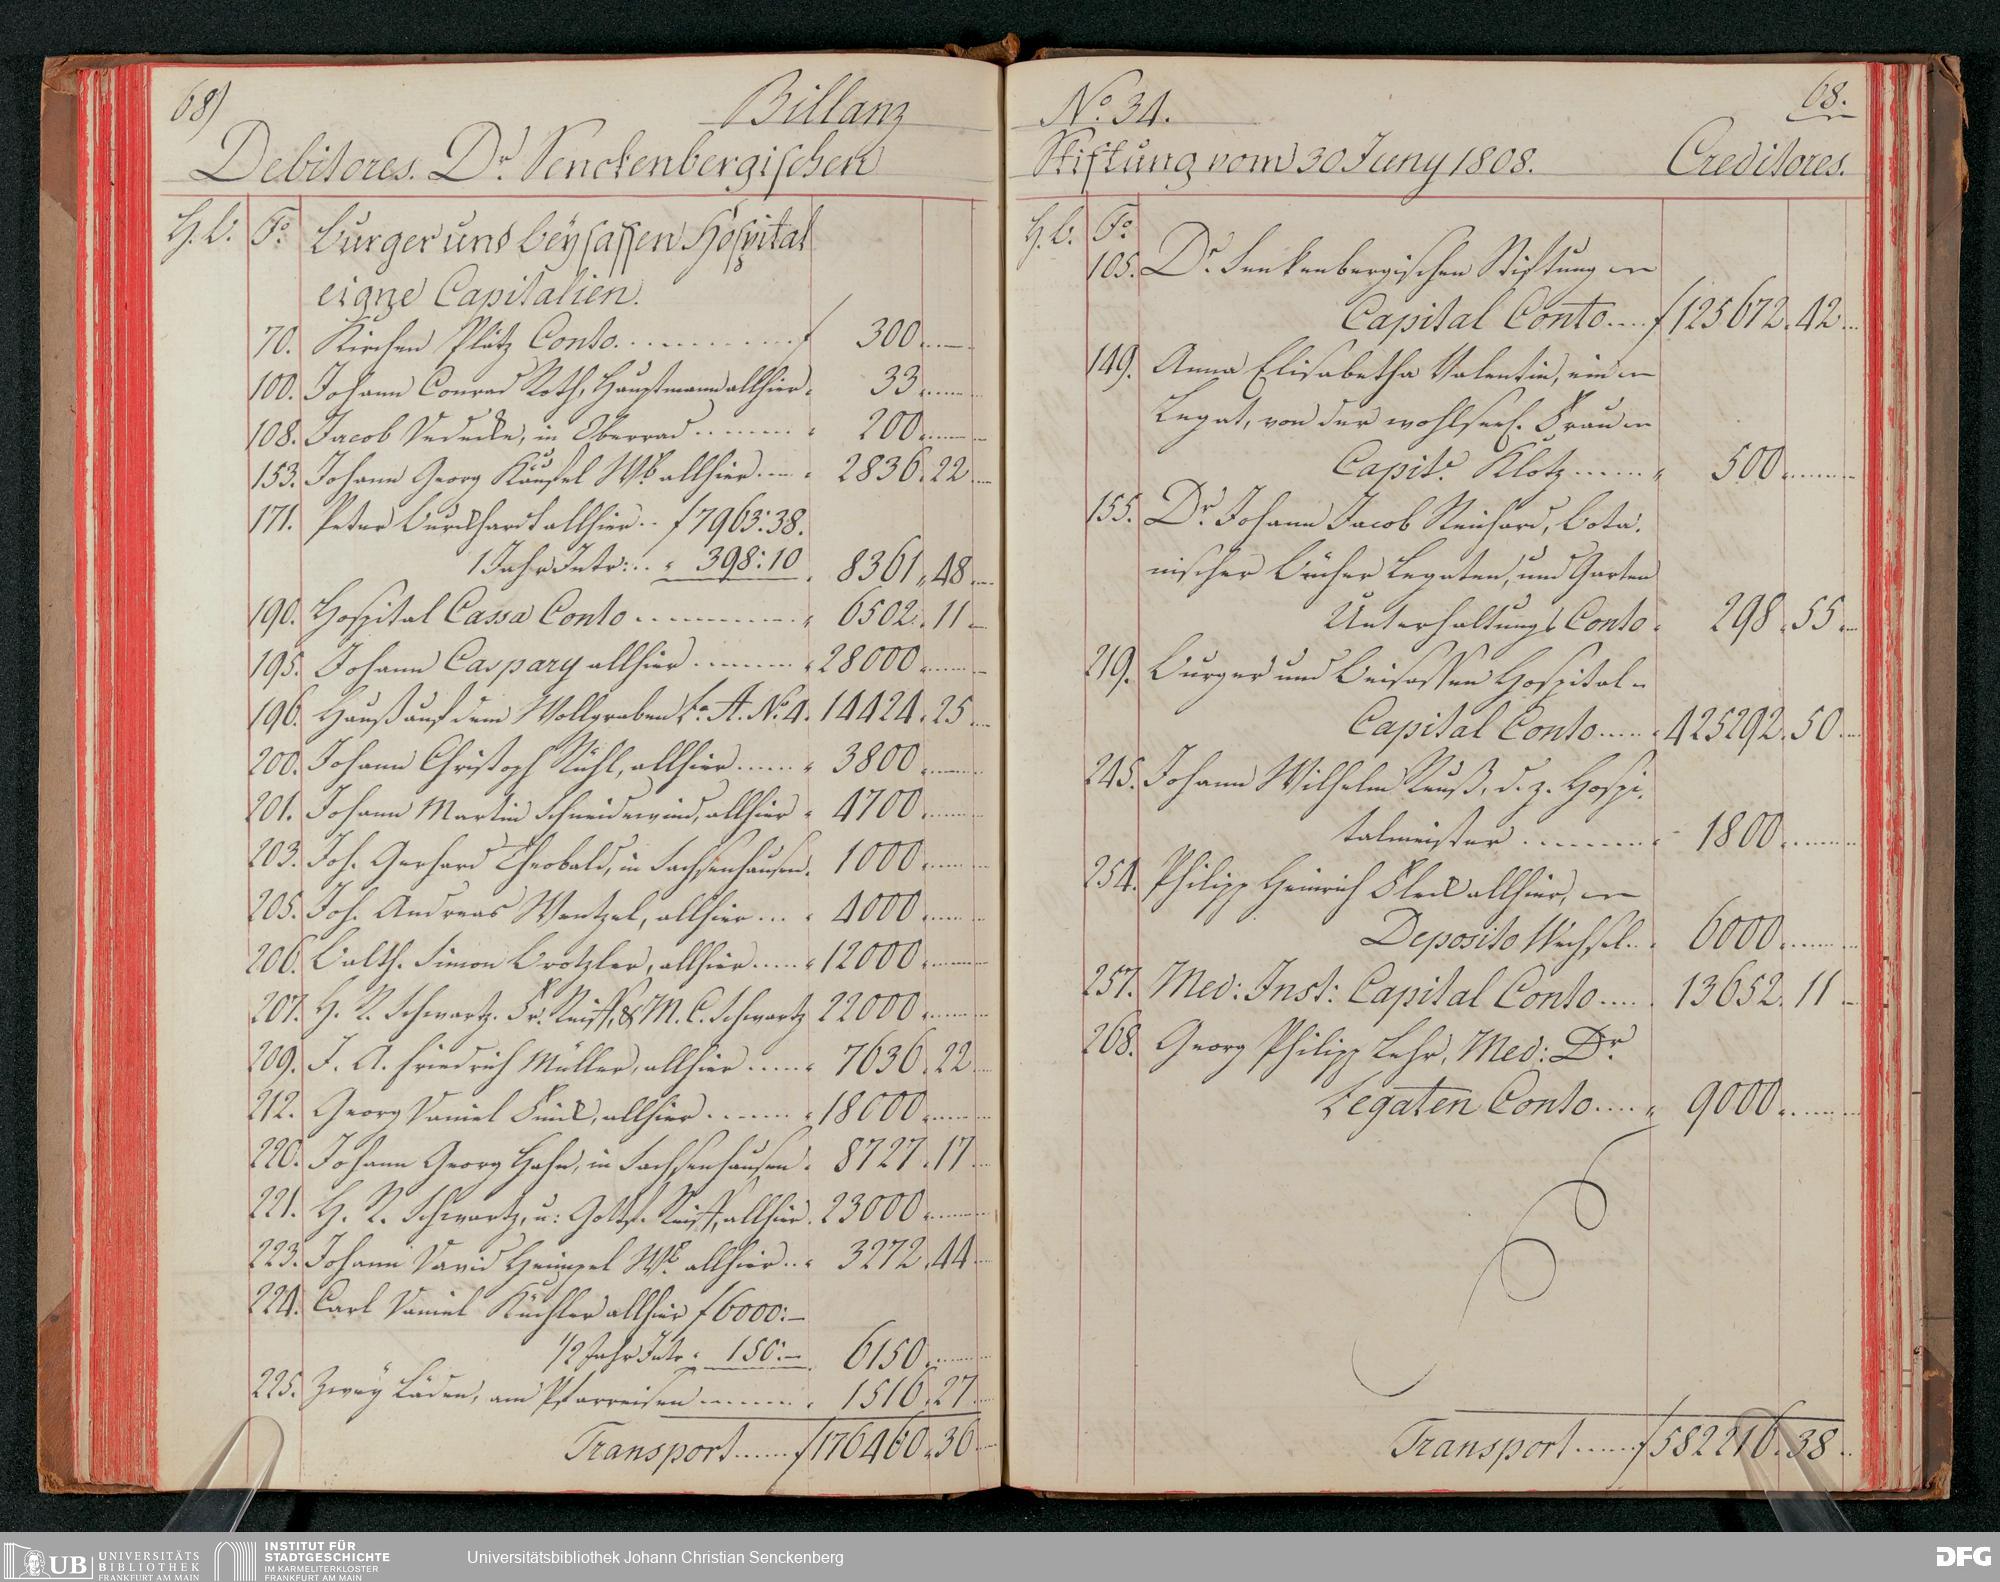 68)
Billanz
Debitores. Dr. Senckenbergischen
H. b. Fo. Burger und beysassen Hospital
eigne Capitalien.
70. Kirchen Platz Conto. f 300.
100. Johann Conrad Roth, Hauptmann allhier 33.
108. Jacob Dedecke, in Oberrad 200.
153. Johann Georg Wb allhier 2836.22
171. Peter Burckhardt allhier .. f 7963:38.
1 Jahr Intr: .. 398:10 8361.48
190. Hospital Cassa Conto 6502.11
195. Johann Caspary allhier 28000.
196. Hauß auf dem Wollgraben La. A. No. 4. 14424.25
200. Johann Christoph Rühl, allhier 3800.
201. Johann Martin Schneidewind, allhier 4700.
203. Joh. Gerhard Theobald, in Sachsenhausen. 1000.
205. Joh. Andreas Wentzel, allhier 4000.
206. Balth. Simon Brotzler, allhier 12000.
207. H. R. Schwartz. Fr. & M. C. Schwartz 22000.
209. J. A. Friedrich Müller, allhier 7636.22
212. Georg Daniel Finck, allhier 18000.
220. Johann Georg Hahn, in Sachsenhausen 8727.17
221. H. R. Schwartz, u: Gottf. allhier. 23000.
223. Johann David Heimpel Wb. allhier 3272.44
224. Carl Daniel Küchler allhier f 6000:–
1/2 Jahr Intr: 150:– 6150.
225. Zwey Läden, am Pfarreisen 1516.27
Transport f 176460.36
No. 34.
68.
Stiftung vom 30 Juny 1808.
Creditores.
H. b. Fo
105. Dr. Senkenbergischen Stiftung
Capital Conto.... f 125672.42
149. Anna Elisabetha Valentin, ein
Legat, von der wohlseel. Frau
Capit. Klotz 500.
155. Dr. Johann Jacob Reinhard, Bota:
nischer Bücher Legaten, und Garten
Unterhaltungs Conto. 298.55
219. Burger und Beisassen Hospital-
Capital Conto 425292.50
245. Johann Wilhelm Reuß, d. z. Hospi:
talmeister 1800.
254. Philipp Heinrich Fleck allhier,
Deposito Wechsel 6000.
257. Med: Inst: Capital Conto 13652.11
268. Georg Philipp Lehr, Med: Dr.
Legaten Conto 9000.
Transport f 582216.38
UB UNIVERSITÄTS
BIBLIOTHEK
FRANKFURT AM MAIN
INSTITUT FÜR
STADTGESCHICHTE
IM KARMELITERKLOSTER
FRANKFURT AM MAIN
Universitätsbibliothek Johann Christian Senckenberg
DFG